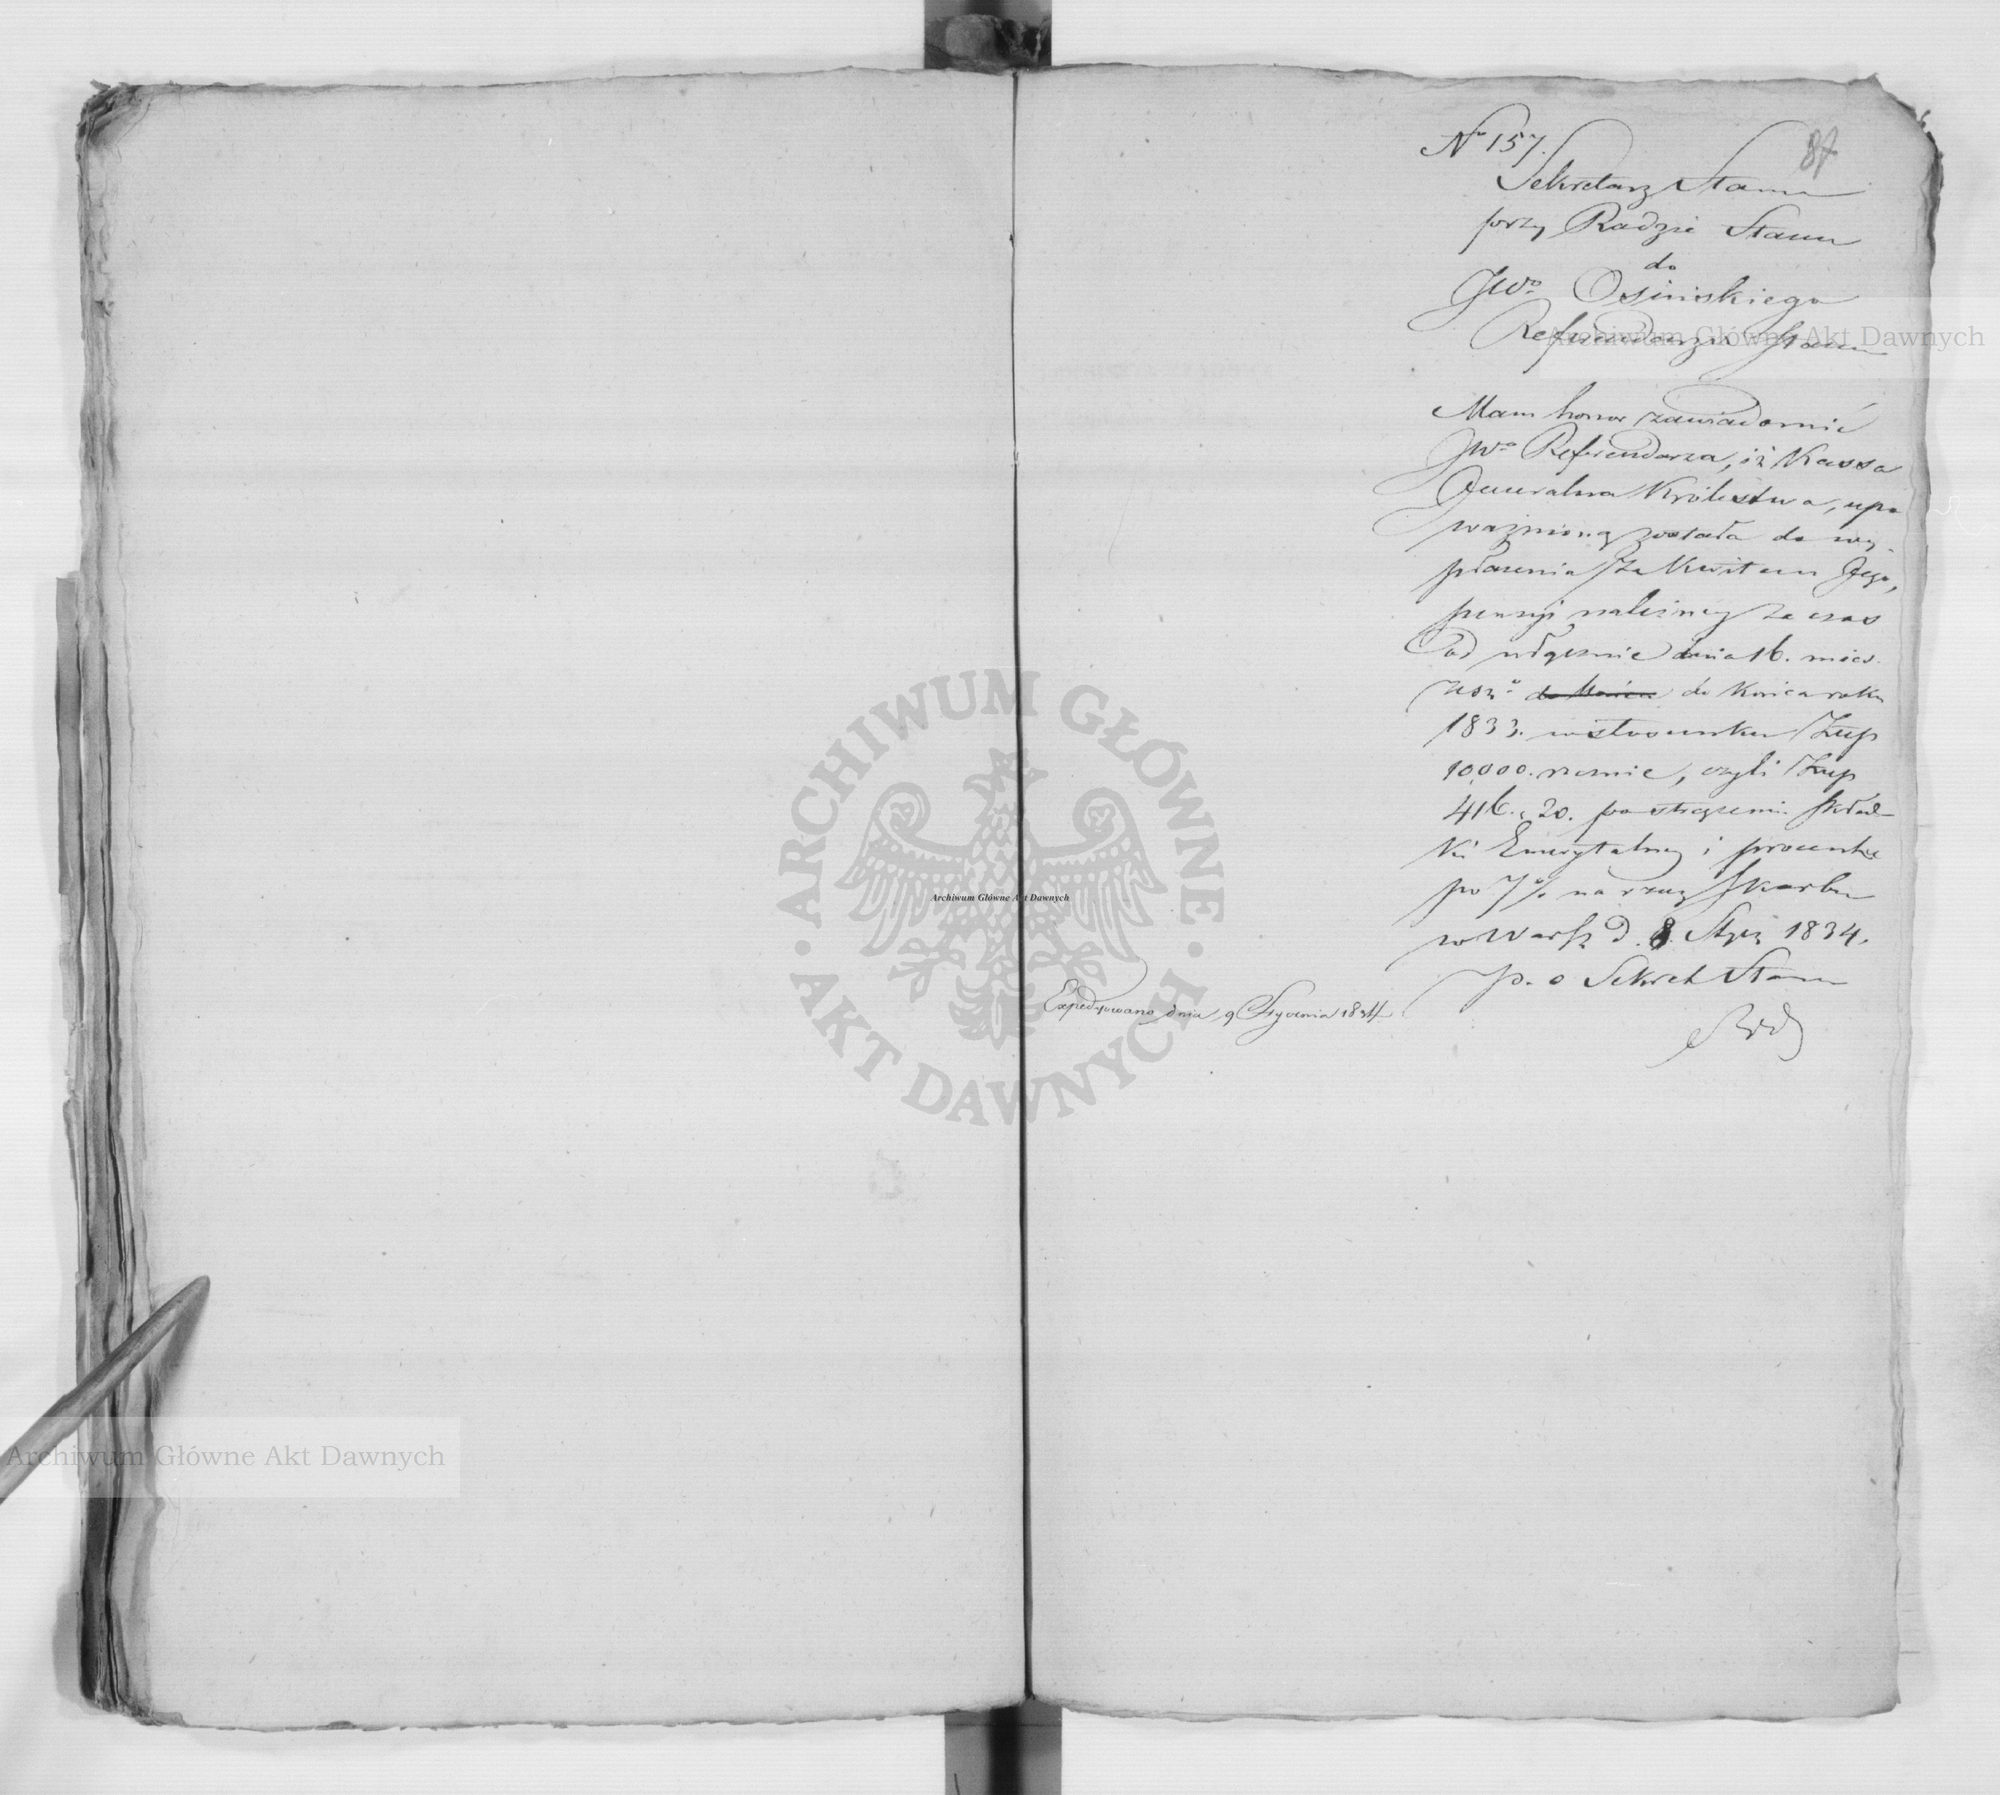 87
No 157.
Sekretarz Stanu
przy Radzie Stanu
do
JWo Osińskiego
Referendarza Stanu
Mam honor zawiadomić
JWo Referendarza, iż Kassa
Generalna Królestwa, upo
ważnioną została do wy-
płacenia za Kwitem Jego,
pensyi należney za czas
od włącznie dnia 16. mies.
zesz.o do końca do końca roku
1833. w stosunku Złłp
10,000. rocznie, czyli Złłp
416. 20. po strąceniu składk-
ki Emerytalney i procentu
po 7% na rzecz Skarbu
w Warsz. d. 8. Stycz 1834.
p. o Sekret Stanu
Expedyowano dnia 9 Stycznia 1834
Archiwum Główne Akt Dawnych
ARCHIWUM GŁÓWNE · AKT DAWNYCH ·
Archiwum Główne Akt Dawnych
Archiwum Główne Akt Dawnych